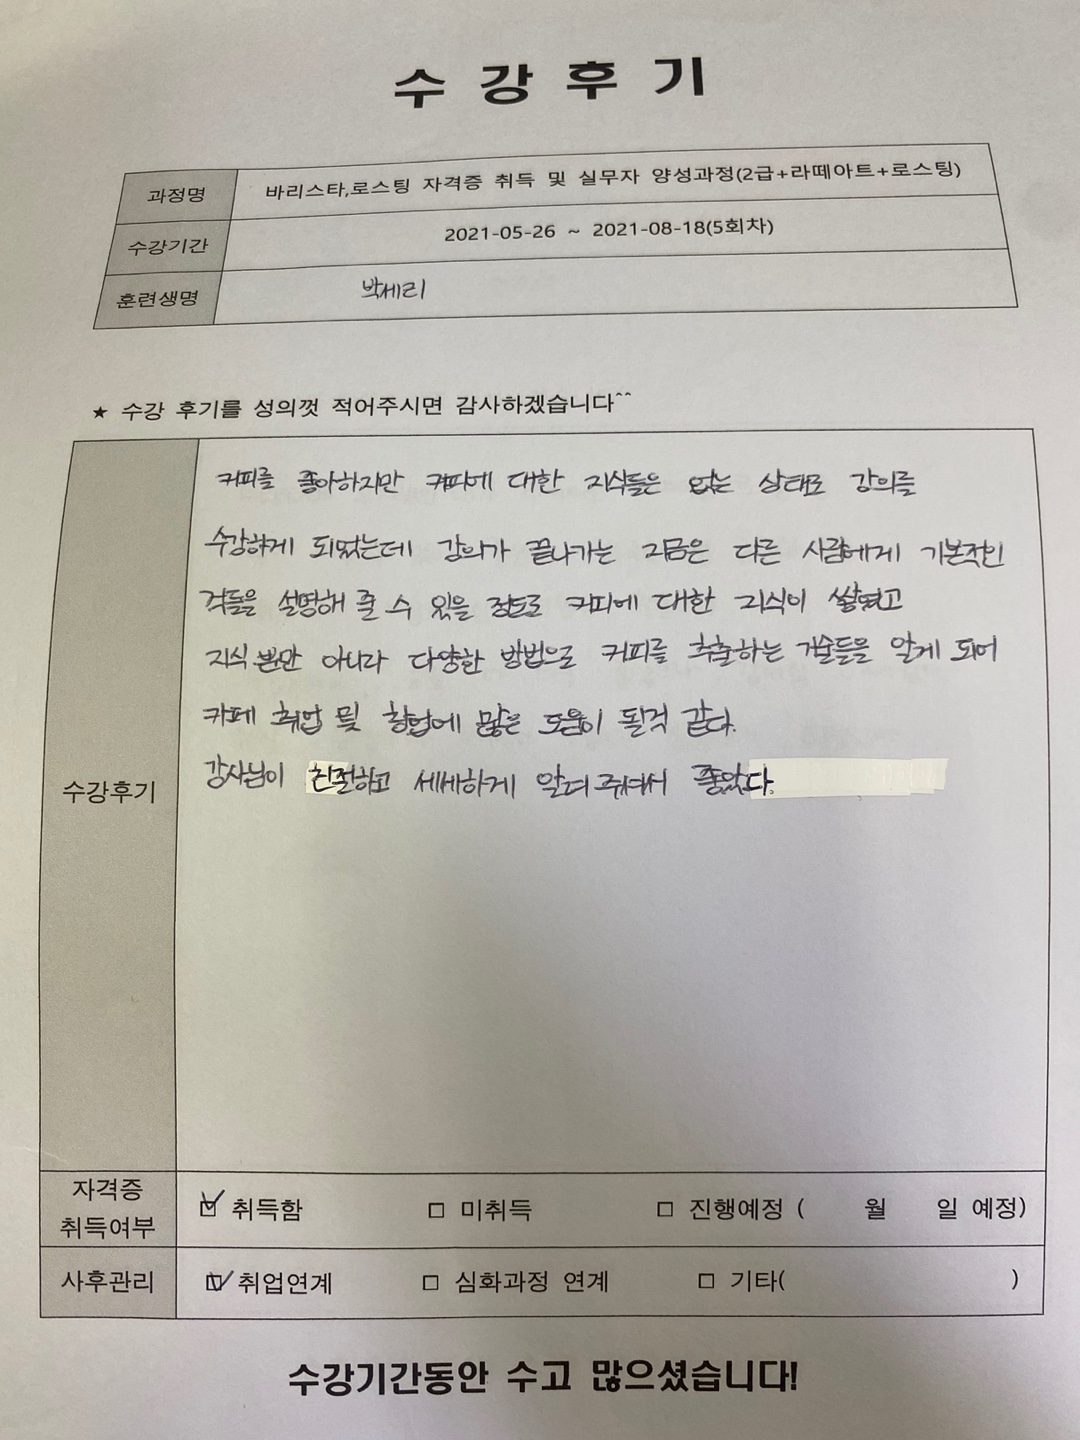 수강후기
과정명 바리스타,로스팅 자격증 취득 및 실무자 양성과정(2급+라떼아트+로스팅)
수강기간 2021-05-26 ~ 2021-08-18(5회차)
훈련생명 박세리
★ 수강 후기를 성의껏 적어주시면 감사하겠습니다^^
커피를 좋아하지만 커피에 대한 지식들은 없는 상태로 강의를
수강하게 되었는데 강의가 끝나가는 지금은 다른 사람에게 기본적인
것들을 설명해 줄 수 있을 정도로 커피에 대한 지식이 쌓였고
지식 뿐만 아니라 다양한 방법으로 커피를 추출하는 기술들을 알게 되어
카페 취업 및 창업에 많은 도움이 될것 같다.
강사님이 친절하고 세세하게 알려 주셔서 좋았다.
수강후기
자격증
취득여부
취득함 미취득 진행예정 ( 월 일 예정)
사후관리 취업연계 심화과정 연계 기타( )
수강기간동안 수고 많으셨습니다!